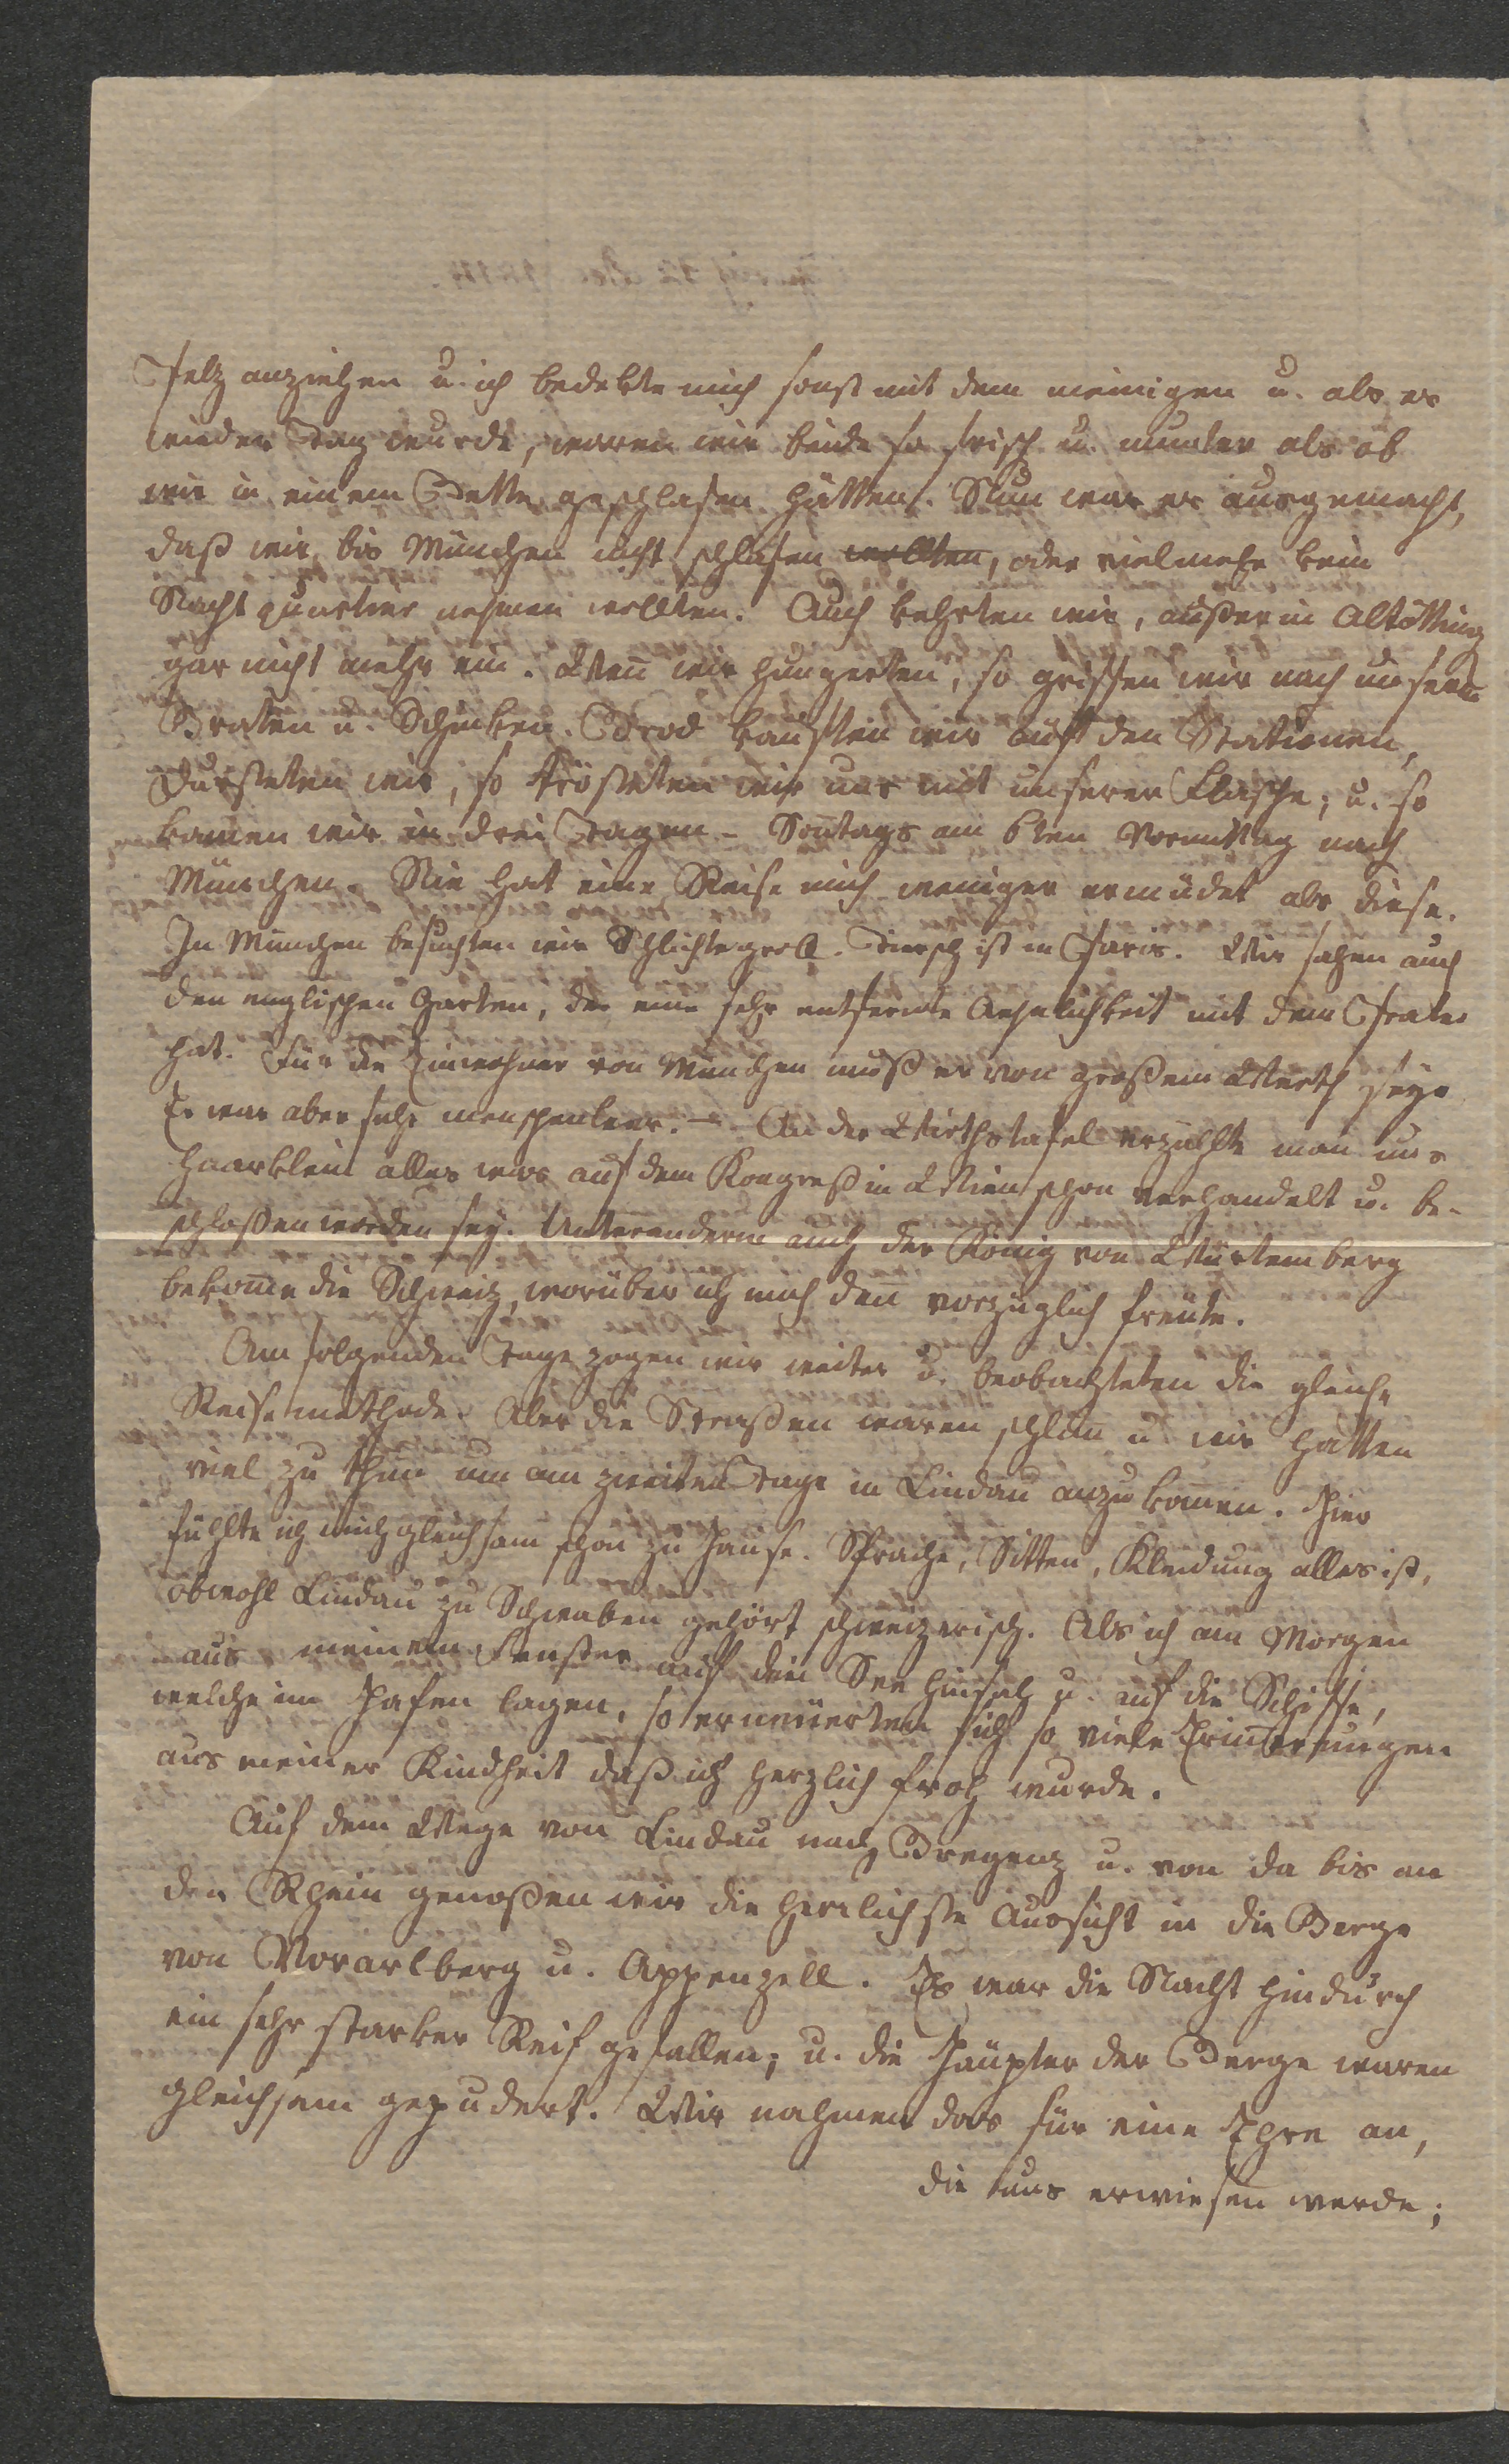 Pelz anziehen u. ich bedekte mich sonst mit dem meinigen u. als es
wieder Tag wurde, waren wir beide so frisch u. munter als ob
wir in einem Bette geschlafen hätten. Nun war es ausgemacht,
daß wir bis München nicht schlafen wollten, oder vielmehr kein
Nachtquartier nehmen wollten. Auch kehrten wir, außer in Altötting
gar nicht mehr ein. Wenn wir hungerten, so griffen wir nach unserm
Braten u. Schinken. Brod kauften wir auf den Stationen,
Dursteten wir, so trösteten wir uns mit unserer Flasche; u. so
kamen wir in drei Tagen - Sontags am 6ten Vormittag nach
München. Nie hat eine Reise mich weniger ermüdet als diese.
In München besuchten wir Schlichtegroll. Tiersch ist in Paris. Wir sahen auch
den englischen Garten, der eine sehr entfernte Aehnlichkeit mit dem Prater
hat. Für die Einwohner von München muß er von großem Werth seyn
Er war aber sehr menschenleer. – An der Wirthstafel erzählte man uns
haarklein alles was auf dem Kongreß in Wien schon verhandelt u. be-
schloßen worden sey. Unteranderm auch der König von Würtemberg
bekomme die Schweiz, worüber ich mich denn vorzüglich freute.
Am folgenden Tage zogen wir weiter u. beobachteten die gleiche
Reisemethode. Aber die Straßen waren schlim u. wir hatten
viel zu thun um am zweiten Tage in Lindau anzukommen. Hier
fühlte ich mich gleichsam schon zu Hause. Sprache, Sitten, Kleidung alles ist,
obwohl Lindau zu Schwaben gehört schweizerisch. Als ich am Morgen
aus meinem Fenster auf den See hinsah u. auf die Schiffe,
welche im Hafen lagen, so erneuerten sich so viele Erinnerungen
aus meiner Kindheit daß ich herzlich froh wurde.
Auf dem Wege von Lindau nach Bregenz u. von da bis an
den Rhein genoßen wir die herrlichste Aussicht in die Berge
von Vorarlberg u. Appenzell. Es war die Nacht hindurch
ein sehr starker Reif gefallen; u. die Häupter der Berge waren
gleichsam gepudert. Wir nahmen das für eine Ehre an,
die uns erwiesen werde;